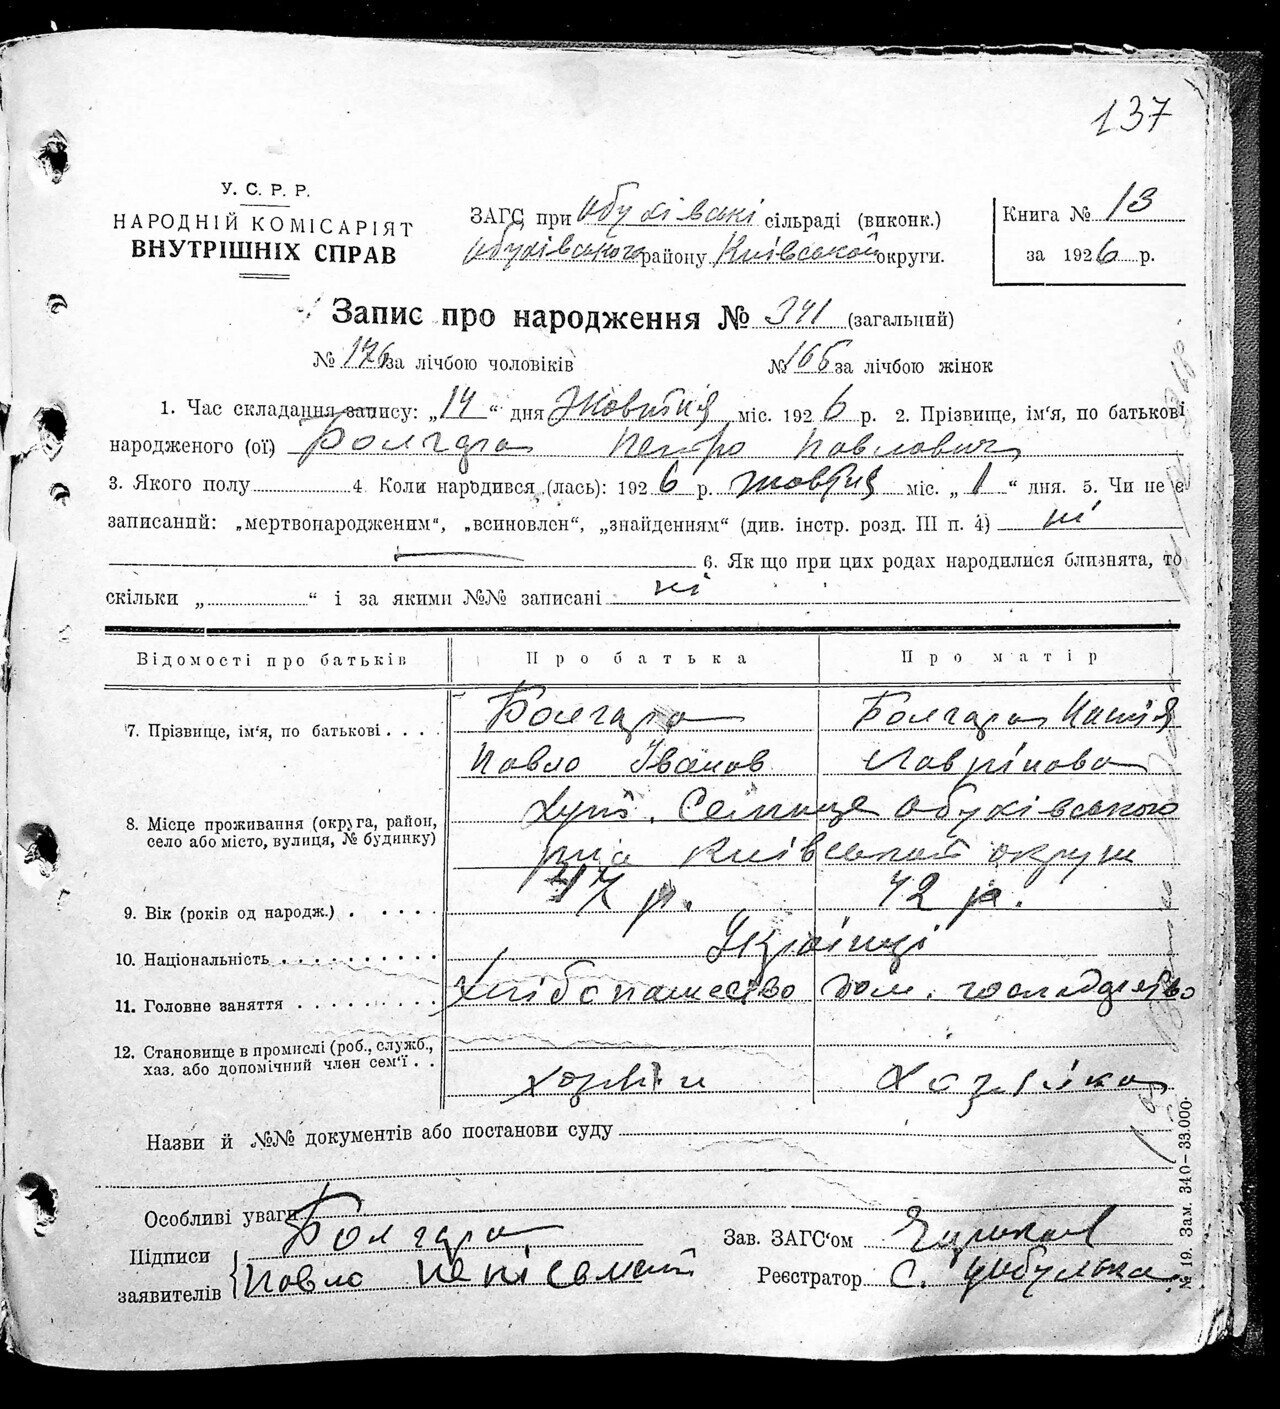 137
У. С. Р. Р.
НАРОДНІЙ КОМІСАРІЯТ
ВНУТРІШНІХ СПРАВ
ЗАГС при Обухівські сільраді (виконк.)
Обухівського району Київської округи.
Книга № 13
за 1926 р.
Запис про народження № 341 (загальний)
№ 176 за лічбою чоловіків № 165 за лічбою жінок
1. Час складання запису: „14“ дня Жовтня міс. 1926 р. 2. Прізвище, ім‘я, по батькові
народженого (ої) Болгара Петро Павлович
3. Якого полу 4. Коли народився (лась): 1926 р. жовтня міс. „1“ дня. 5. Чи не є
записаний: „мертвонародженим“, „всиновлен“, „знайденням“ (див. інстр. розд. III п. 4) ні
6. Як що при цих родах народилися близнята, то
скільки „ “ і за якими №№ записані ні
Відомості про батьків Про батька Про матір
7. Прізвище, ім‘я, по батькові . . . . Болгара Болгара Настя
Павло Іванов Лаврінова
8. Місце проживання (округа, район, село або місто, вулиця, № будинку) Хут. Селище Обухівського
р-на Київської округи
9. Вік (років од народж.) . . . . . 47 р. 42 р.
10. Національність . . . . . . . . . . Українці
11. Головне заняття . . . . . . . . . Хлібопашество дом. господарство
12. Становище в промислі (роб., служб., хаз. або допомічний член сем‘ї . . хозяїн Хазяйка
Назви й №№ документів або постанови суду
Особливі уваги
Підписи
заявителів
Болгара
Павло неписьмений
Зав. ЗАГС‘ом
Реєстратор С. Цибулька
№ 19. Зам. 340–33.000.